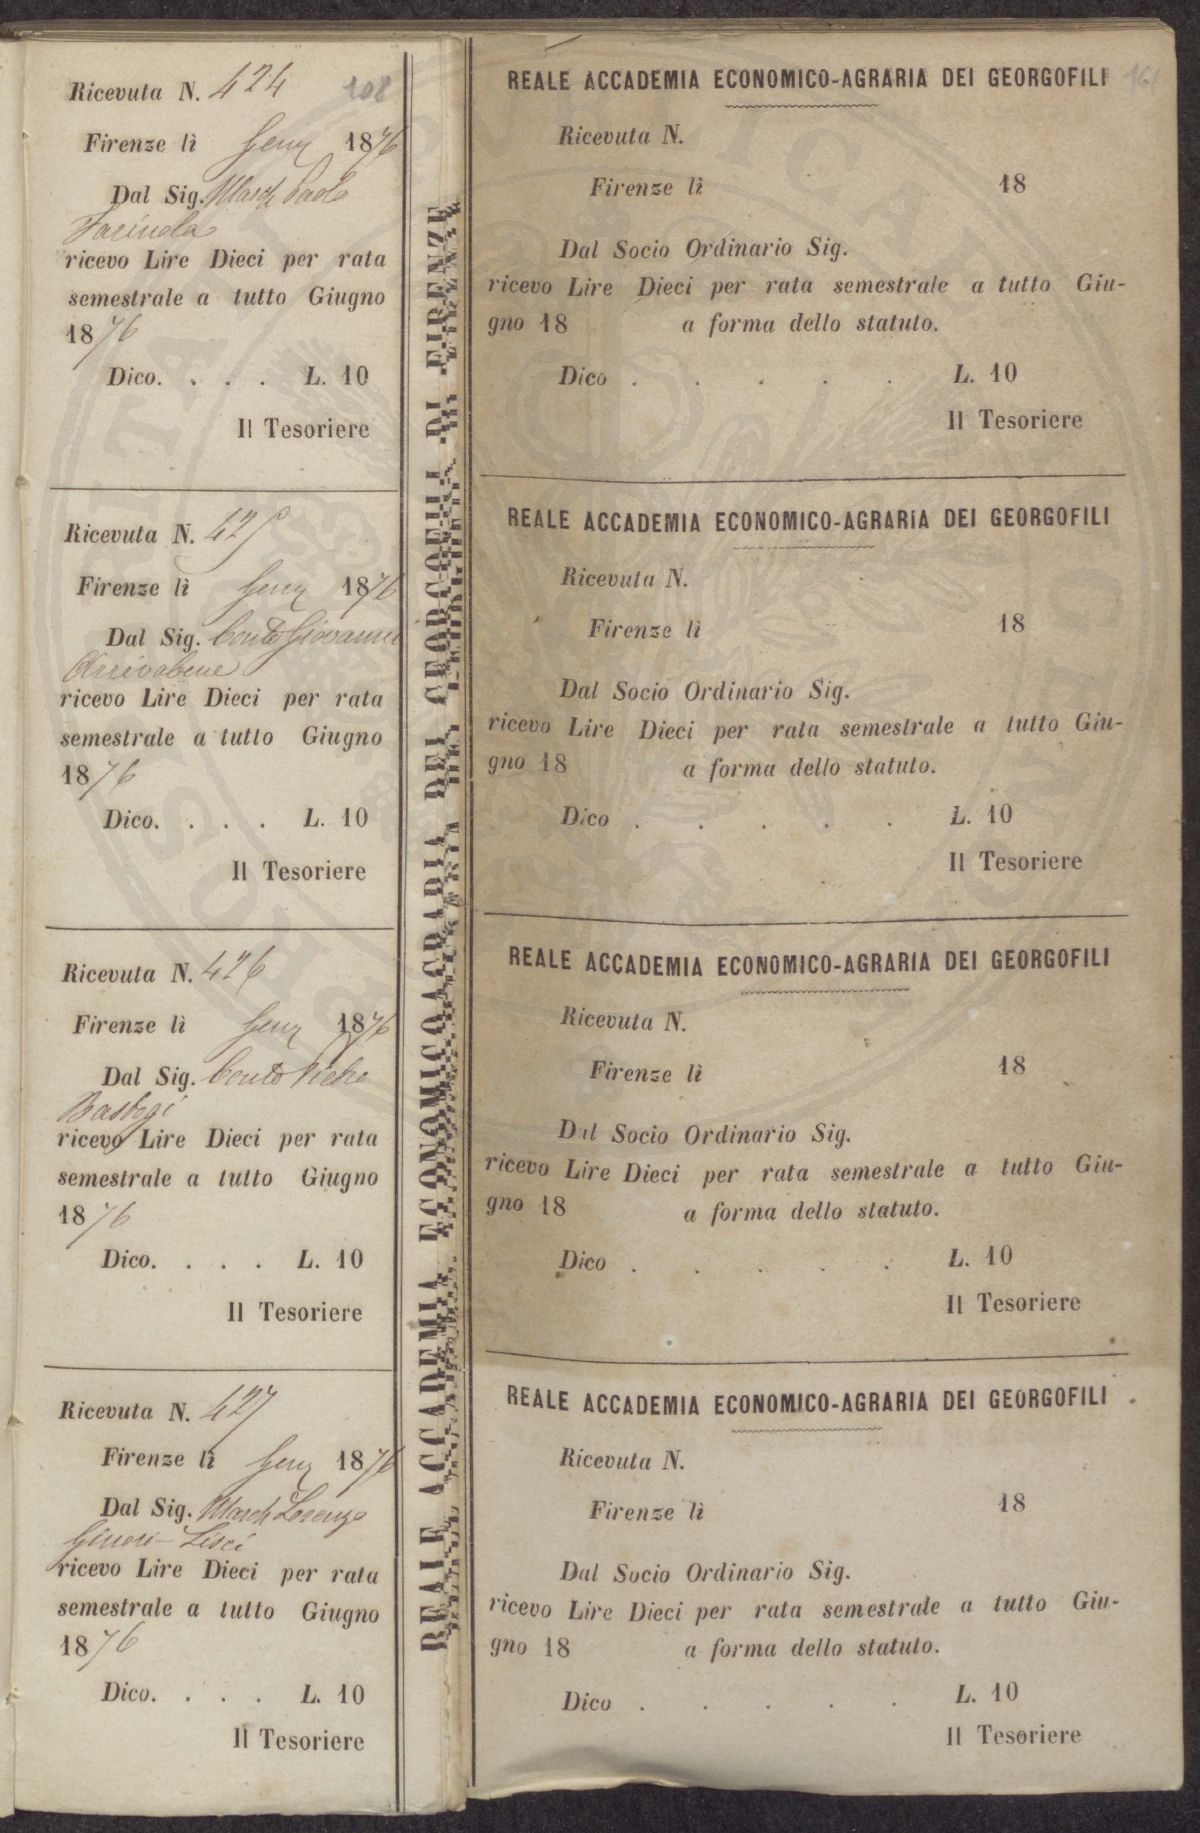 Ricevuta N. 424
108
Firenze lì Genn 1876
Dal Sig. March Paolo
Farinola
ricevo Lire Dieci per rata
semestrale a tutto Giugno
1876
Dico. . . . L. 10
Il Tesoriere
Ricevuta N. 425
Firenze lì Genn 1876
Dal Sig. Conte Giovanni
Arrivabene
ricevo Lire Dieci per rata
semestrale a tutto Giugno
1876
Dico. . . . L. 10
Il Tesoriere
Ricevuta N. 426
Firenze lì Genn 1876
Dal Sig. Conte Pietro
Bastogi
ricevo Lire Dieci per rata
semestrale a tutto Giugno
1876
Dico. . . . L. 10
Il Tesoriere
Ricevuta N. 427
Firenze lì Genn 1876
Dal Sig. March Lorenzo
Ginori-Lisci
ricevo Lire Dieci per rata
semestrale a tutto Giugno
1876
Dico. . . . L. 10
Il Tesoriere
REALE ACCADEMIA ECONOMICO AGRARIA DEI GEORGOFILI DI FIRENZE
REALE ACCADEMIA ECONOMICO-AGRARIA DEI GEORGOFILI
Ricevuta N.
Firenze lì 18
Dal Socio Ordinario Sig.
ricevo Lire Dieci per rata semestrale a tutto Giu-
gno 18 a forma dello statuto.
Dico . . . . . L. 10
Il Tesoriere
REALE ACCADEMIA ECONOMICO-AGRARIA DEI GEORGOFILI
Ricevuta N.
Firenze lì 18
Dal Socio Ordinario Sig.
ricevo Lire Dieci per rata semestrale a tutto Giu-
gno 18 a forma dello statuto.
Dico . . . . . L. 10
Il Tesoriere
REALE ACCADEMIA ECONOMICO-AGRARIA DEI GEORGOFILI
Ricevuta N.
Firenze lì 18
Dal Socio Ordinario Sig.
ricevo Lire Dieci per rata semestrale a tutto Giu-
gno 18 a forma dello statuto.
Dico . . . . . L. 10
Il Tesoriere
REALE ACCADEMIA ECONOMICO-AGRARIA DEI GEORGOFILI
Ricevuta N.
Firenze lì 18
Dal Socio Ordinario Sig.
ricevo Lire Dieci per rata semestrale a tutto Giu-
gno 18 a forma dello statuto.
Dico . . . . . L. 10
Il Tesoriere